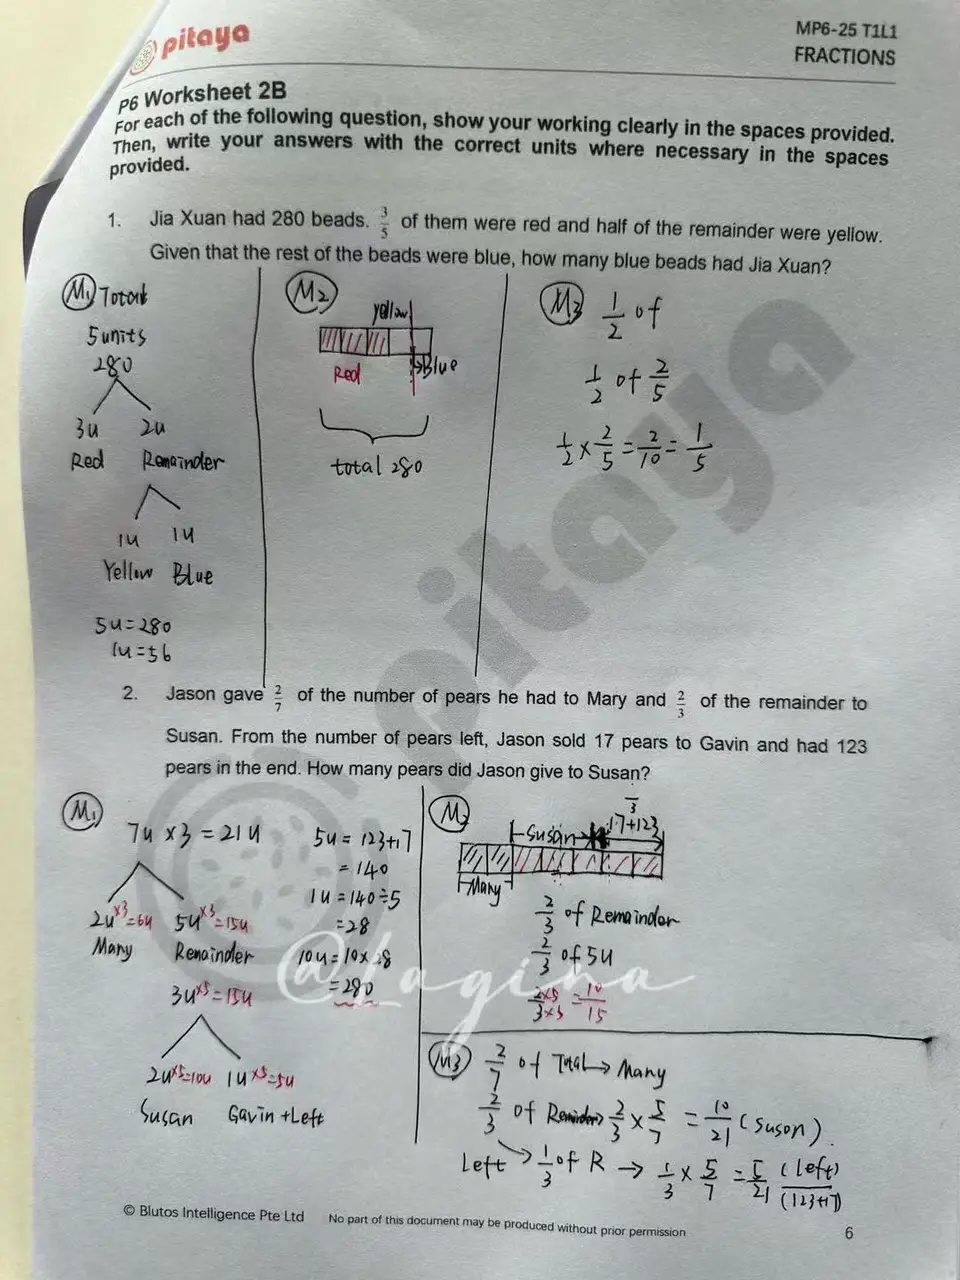 pitaya
MP6-25 T1L1
FRACTIONS
P6 Worksheet 2B
For each of the following question, show your working clearly in the spaces provided.
Then, write your answers with the correct units where necessary in the spaces
provided.
1. Jia Xuan had 280 beads. 3/5 of them were red and half of the remainder were yellow.
Given that the rest of the beads were blue, how many blue beads had Jia Xuan?
M1 Total
5 units
280
3u 2u
Red Remainder
1u 1u
Yellow Blue
5u = 280
1u = 56
M2
yellow
Red
Blue
total 280
M3 1/2 of
1/2 of 2/5
1/2 × 2/5 = 2/10 = 1/5
2. Jason gave 2/7 of the number of pears he had to Mary and 2/3 of the remainder to
Susan. From the number of pears left, Jason sold 17 pears to Gavin and had 123
pears in the end. How many pears did Jason give to Susan?
M1
7u × 3 = 21u
2u ×3 = 6u 5u ×3 = 15u
Many Remainder
3u ×5 = 15u
2u ×5 = 10u 1u ×5 = 5u
Susan Gavin + Left
5u = 123+17
= 140
1u = 140 ÷ 5
= 28
10u = 10 × 28
= 280
M2
3
Susan 17+123
Many
2/3 of Remainder
2/3 of 5u
2×5/3×5 = 10/15
M3 2/7 of Total → Many
2/3 of Remainder 2/3 × 5/7 = 10/21 (Suson).
Left → 1/3 of R → 1/3 × 5/7 = 5/21 (left)
(123+17)
@Lagina
pitaya
© Blutos Intelligence Pte Ltd No part of this document may be produced without prior permission 6